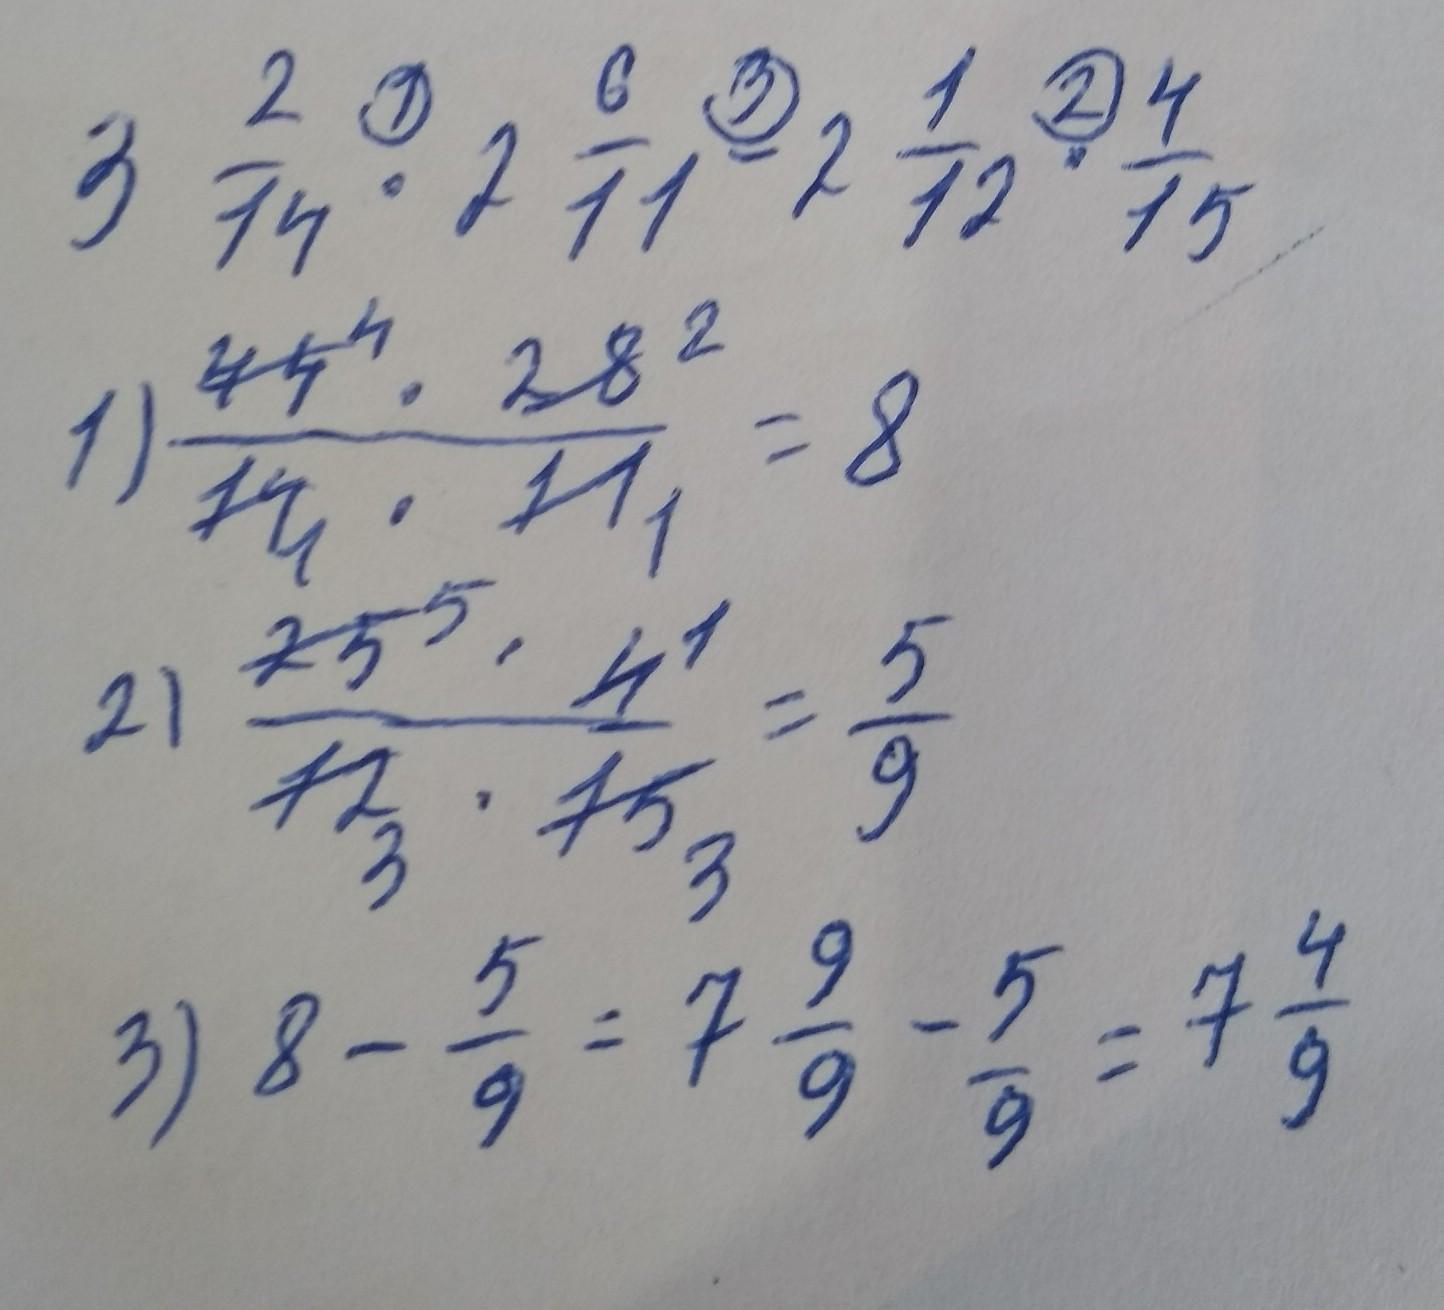 3 2/14 ① · 2 6/11 ③ - 2 1/12 ② · 4/15
1) 44⁴ · 28² / 14₁ · 11₁ = 8
2) 25⁵ · 4¹ / 12₃ · 15₃ = 5/9
3) 8 - 5/9 = 7 9/9 - 5/9 = 7 4/9